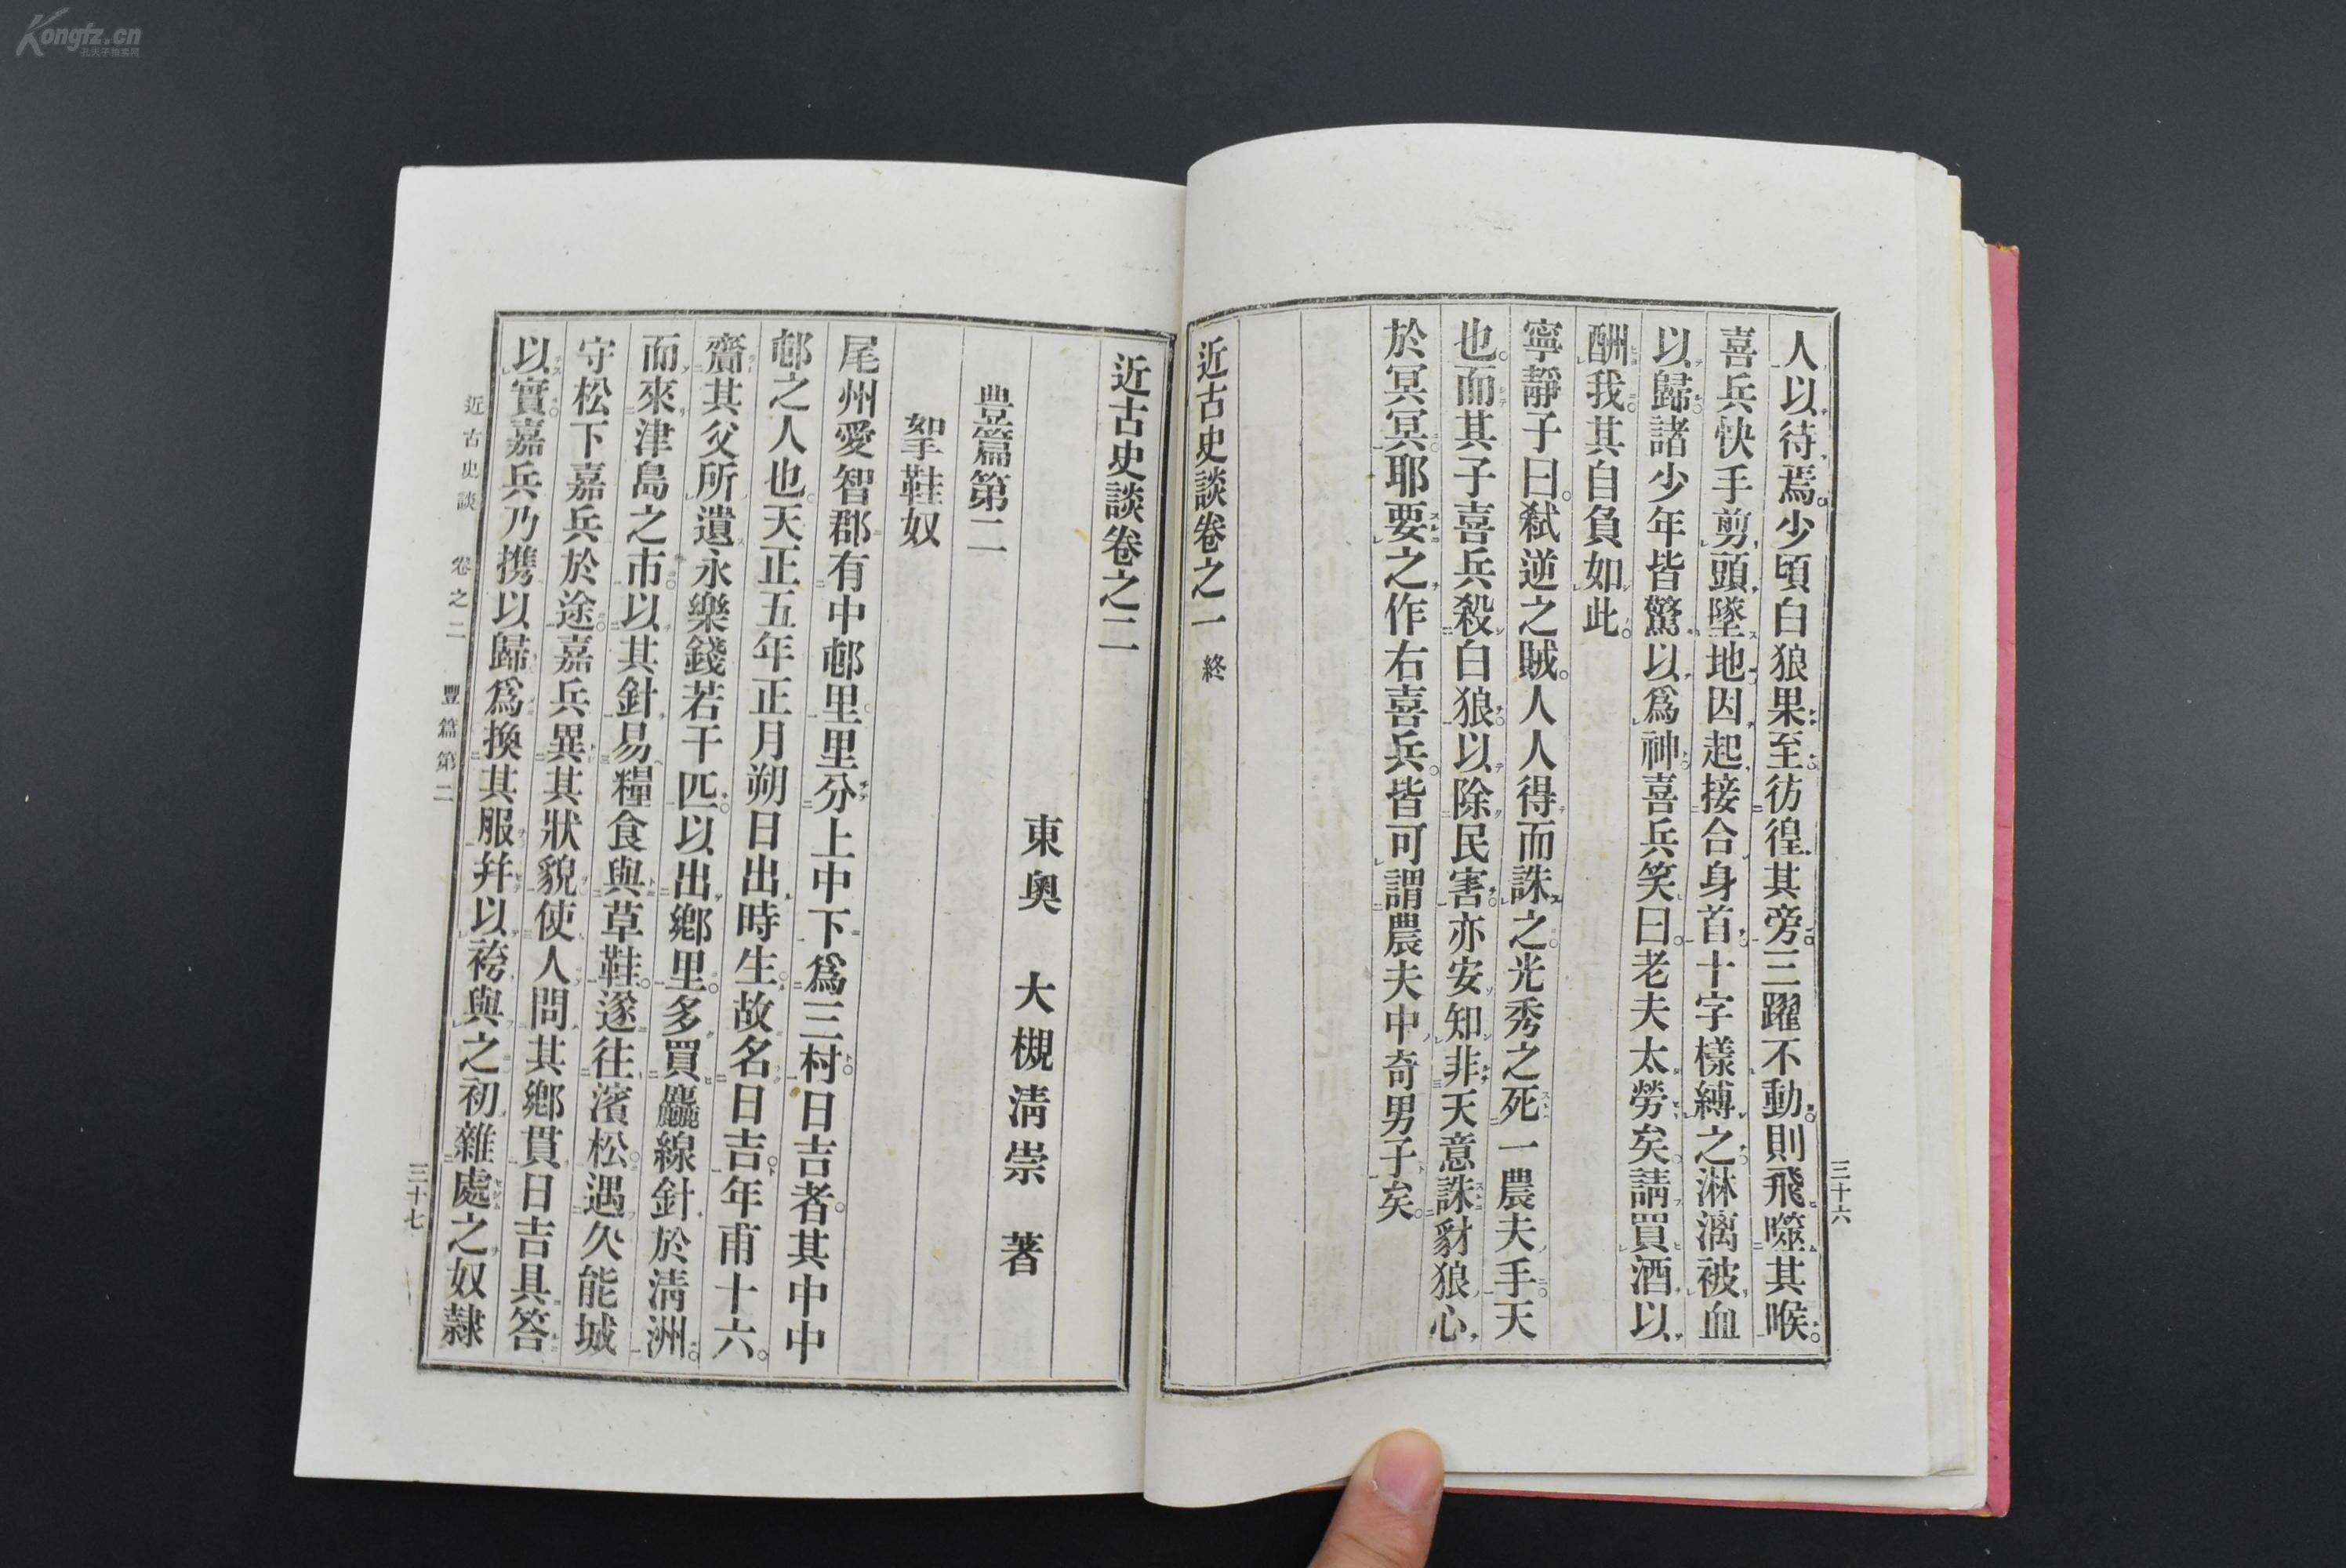 Kongfz.cn
孔夫子拍卖网
三十六
人以待焉。少頃白狼果至。彷徨其旁。三躍不動。則飛噬其喉。
喜兵快手剪頭。墜地。因起接合身首。十字樣縛之。淋漓被血
以歸。諸少年皆驚以爲神。喜兵笑曰。老夫太勞矣。請買酒以
酬我。其自負如此。
寧靜子曰。弑逆之賊。人人得而誅之。光秀之死一農夫手。天
也。而其子喜兵殺白狼。以除民害。亦安知非天意誅豺狼心
於冥冥耶。要之作右喜兵。皆可謂農夫中奇男子矣。
近古史談卷之一 終
近古史談卷之二
東奧 大槻淸崇 著
豊篇第二
挐鞋奴
尾州愛智郡有中邨里。里分上中下爲三村。曰吉者。其中中
邨之人也。天正五年正月朔日出時生。故名曰吉。年甫十六。
齎其父所遺永樂錢若干匹。以出鄕里。多買麤線針於淸洲。
而來津島之市。以其針易糧食與草鞋。遂往濱松。遇久能城
守松下嘉兵於途。嘉兵異其狀貌。使人問其鄕貫。日吉具答
以實。嘉兵乃携以歸。爲換其服。幷以袴與之。初雜處之奴隷
近古史談 卷之二 豐篇第二
三十七